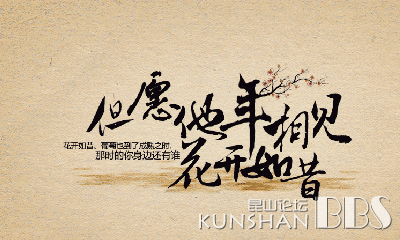 但愿他年相见
花开如昔
花开如昔、葡萄也到了成熟之时,
那时的你身边还有谁
昆山论坛
KUNSHAN BBS